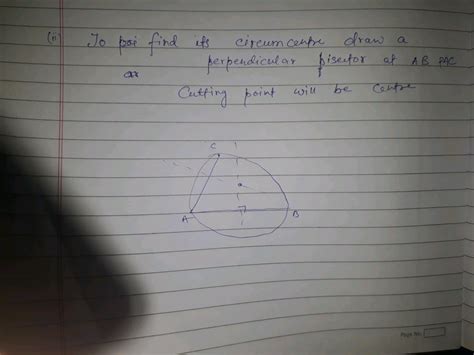 (ii) To find its circumcentre draw a
perpendicular bisector at AB &AC
Cutting point will be centre
C
A
B
Page No.